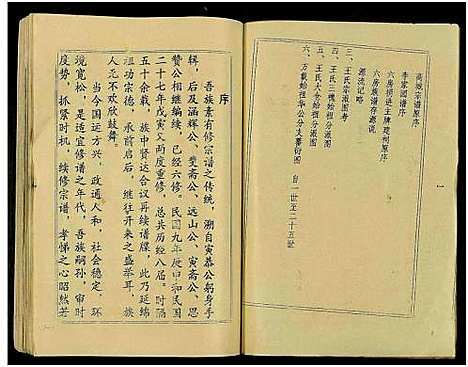 高城宗谱原序
李家湖谱序
六房捐进主牌建祠原序
六房族谱存源说
源流记略
三、王氏宗派图考
四、王氏三槐始祖分派图
五、王氏大分始祖分派图
六、万载始祖华公分支蕃衍图　自一世至二十五世
序
吾族素有修宗谱之传统，溯自寅恭公躬身手
辑，后及涵辉公、斐斋公、远山公、寅斋公、恩
赞公相继编续，已经六修。民国九年庚申和民国
二十七年戊寅又两度重修，总共历经八届。时隔
五十余载，族中贤达合议再续谱牒，此乃延绵
祖功宗德，承前启后，继往开来之盛举耳，族
人无不欢欣鼓舞。
当今国运方兴，政通人和，社会稳定，环
境宽松，是适宜修谱之年代，吾族嗣孙，审时
度势，抓紧时机，续修宗谱，孝悌之心昭然若